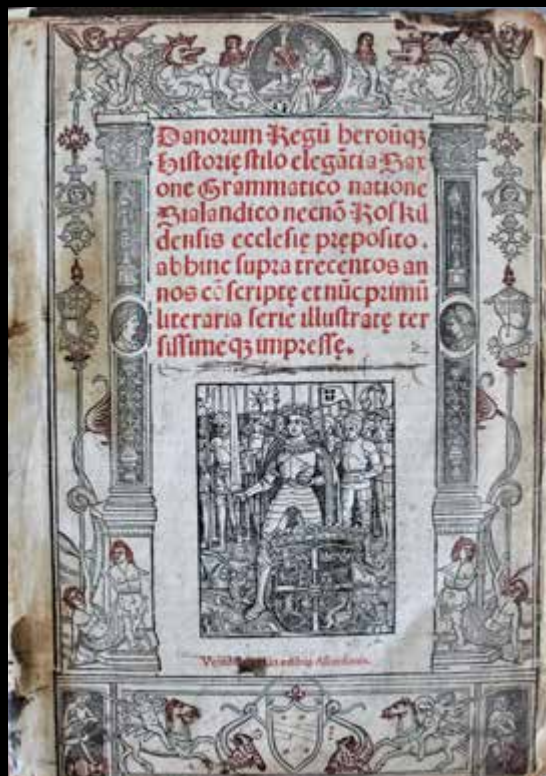 Danorum Regū heroūqꝫ
Historię stilo elegāti a Sax
one Grammatico natione
Sialandico necnō Roskil
densis ecclesię pręposito.
abhinc supra trecentos an
nos cōscriptę et nūc primū
literaria serie illustratę ter
sissimeqꝫ impressę.
in ędibus Ascensianis.